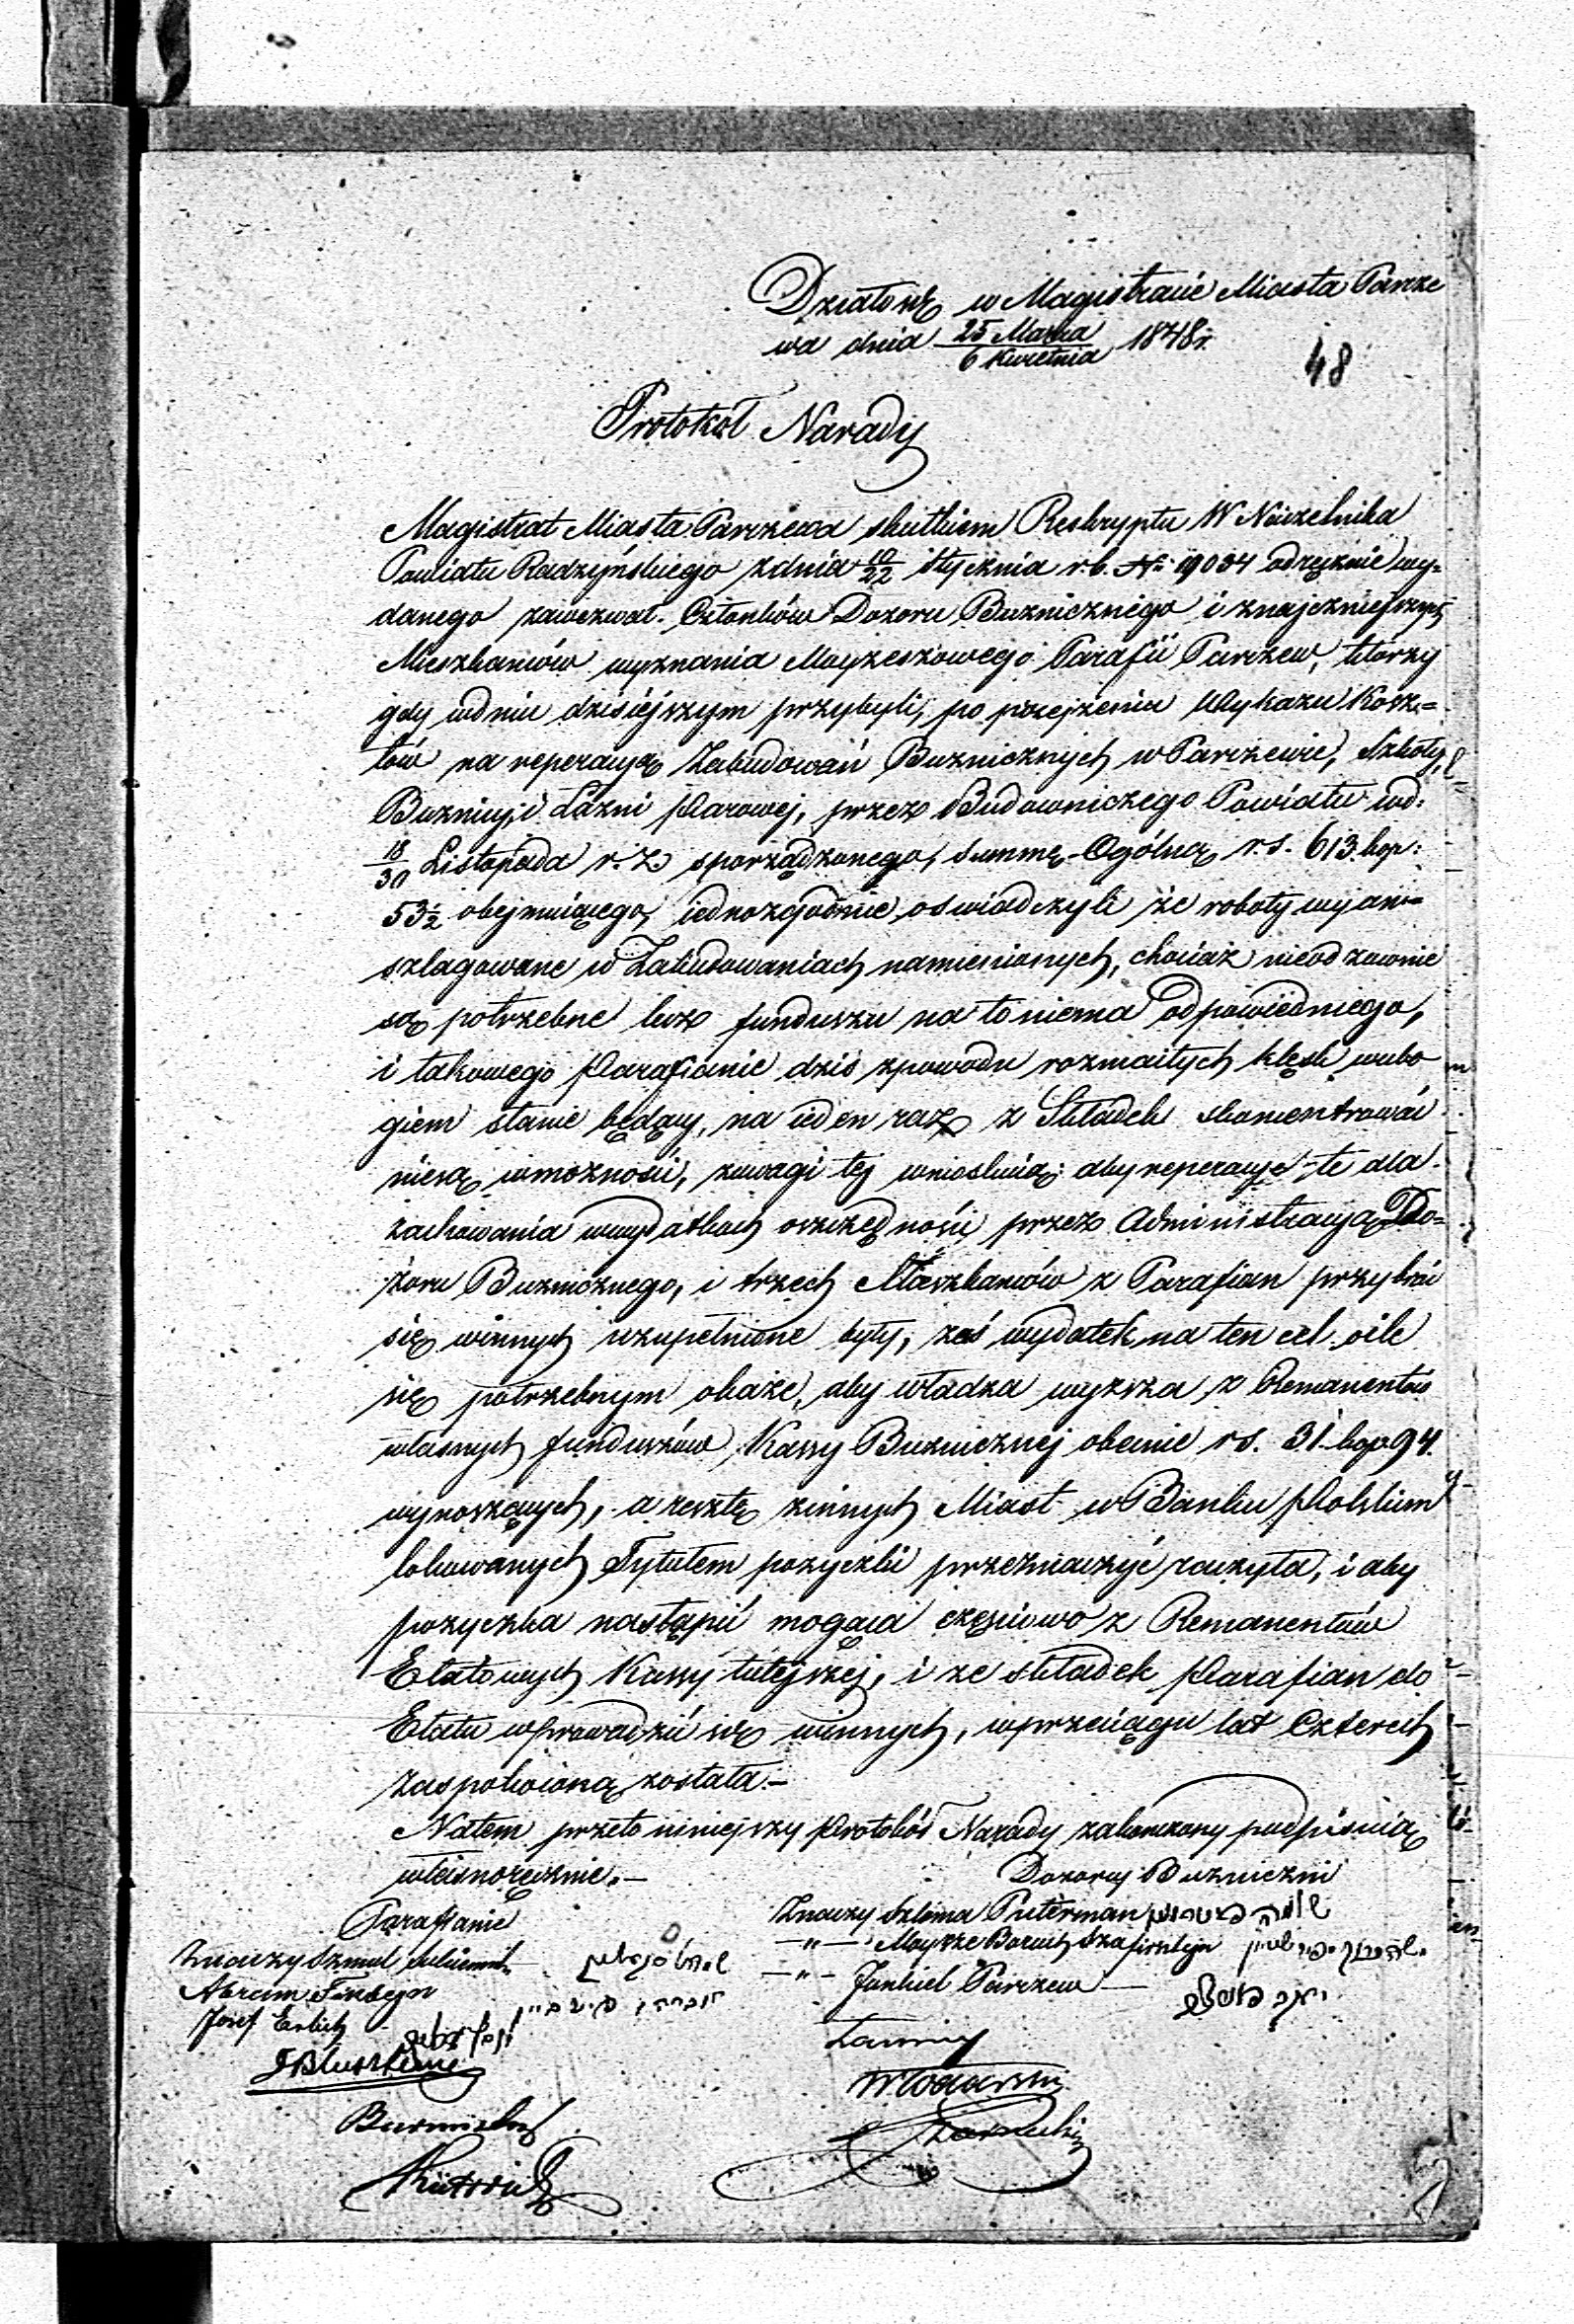 Działo się w Magistracie Miasta Parcze
wa dnia 25 Marca / 6 Kwietnia 1848 r.
48
Protokół Narady
Magistrat Miasta Parczewa skutkiem Reskryptu W Naczelnika
Powiatu Radzyńskiego z dnia 10/22 Stycznia r.b. No 19034 odręcznie wy=
danego zawezwał Członków Dozoru Bużnicznego i znajczniejszych
Mieszkańców wyznania Mojżeszowego Parafii Parczew, którzy
gdy w dniu dzisiejszym przybyli, po przejrzeniu Wykazu Kosz=
tów na reperacyą Zabudowań Bużnicznych w Parczewie, Szkoły,
Bużnicy, i Łaźni Parowej, przez Budowniczego Powiatu w d:
18/30 Listopada r. z. sporządzonego, summę Ogólną r.s. 613 kop:
53½ obejmującego, iednozgodnie oswiadczyli że roboty wyan=
szlagowane w Zabudowaniach namienionych, chociaż nieodzownie
są potrzebne lecz funduszu na to niema odpowiedniego,
i takowego Parafianie dziś z powodu rozmaitych klęsk w ubo
giem stanie będący, na ieden raz z Składek
nie są w możności, z uwagi tej wnieśli aby reperacye te dla
zachowania w wydatkach oszczędności przez Administracyą Do=
zoru Bużnicznego, i trzech Mieszkańców z Parafian przybrać
się winnych uzupełnione były, zaś wydatek na ten cel o ile
się potrzebnym okaże, aby władza wyższa z Remanentów
własnych funduszów Kassy Bużnicznej obecnie rs. 31 kop 94
wynoszących, a resztę z innych Miast w Banku Polskim
lokowanych Tytułem pożyczki przeznaczyć raczyła, i aby
pożyczka nastąpić mogąca częściowo z Remanentów
Etatowych Kassy tutejszej, i ze składek Parafian do
Etatu wprowadzić się winnych, w przeciągu lat Czterech
zaspokoioną została –
Na tem przeto niniejszy Protokół Narady zakończony podpisuią
własnoręcznie. –
Dozorcy Bużniczni
Parafianie
Znaczy Szloma Puterman
–„– Moyzze Boruch Szafirsztejn
–„– Jankiel Parczew –
Znaczy Szmul
Abram
Josef Erlich
Ławnicy
Burmistrz